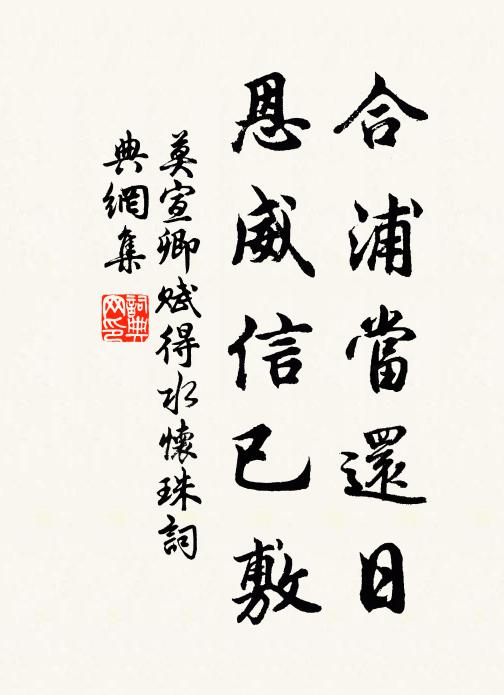 合浦當還日
恩威信已敷
莫宣卿賦得水懷珠詞
典網集
詞典網印